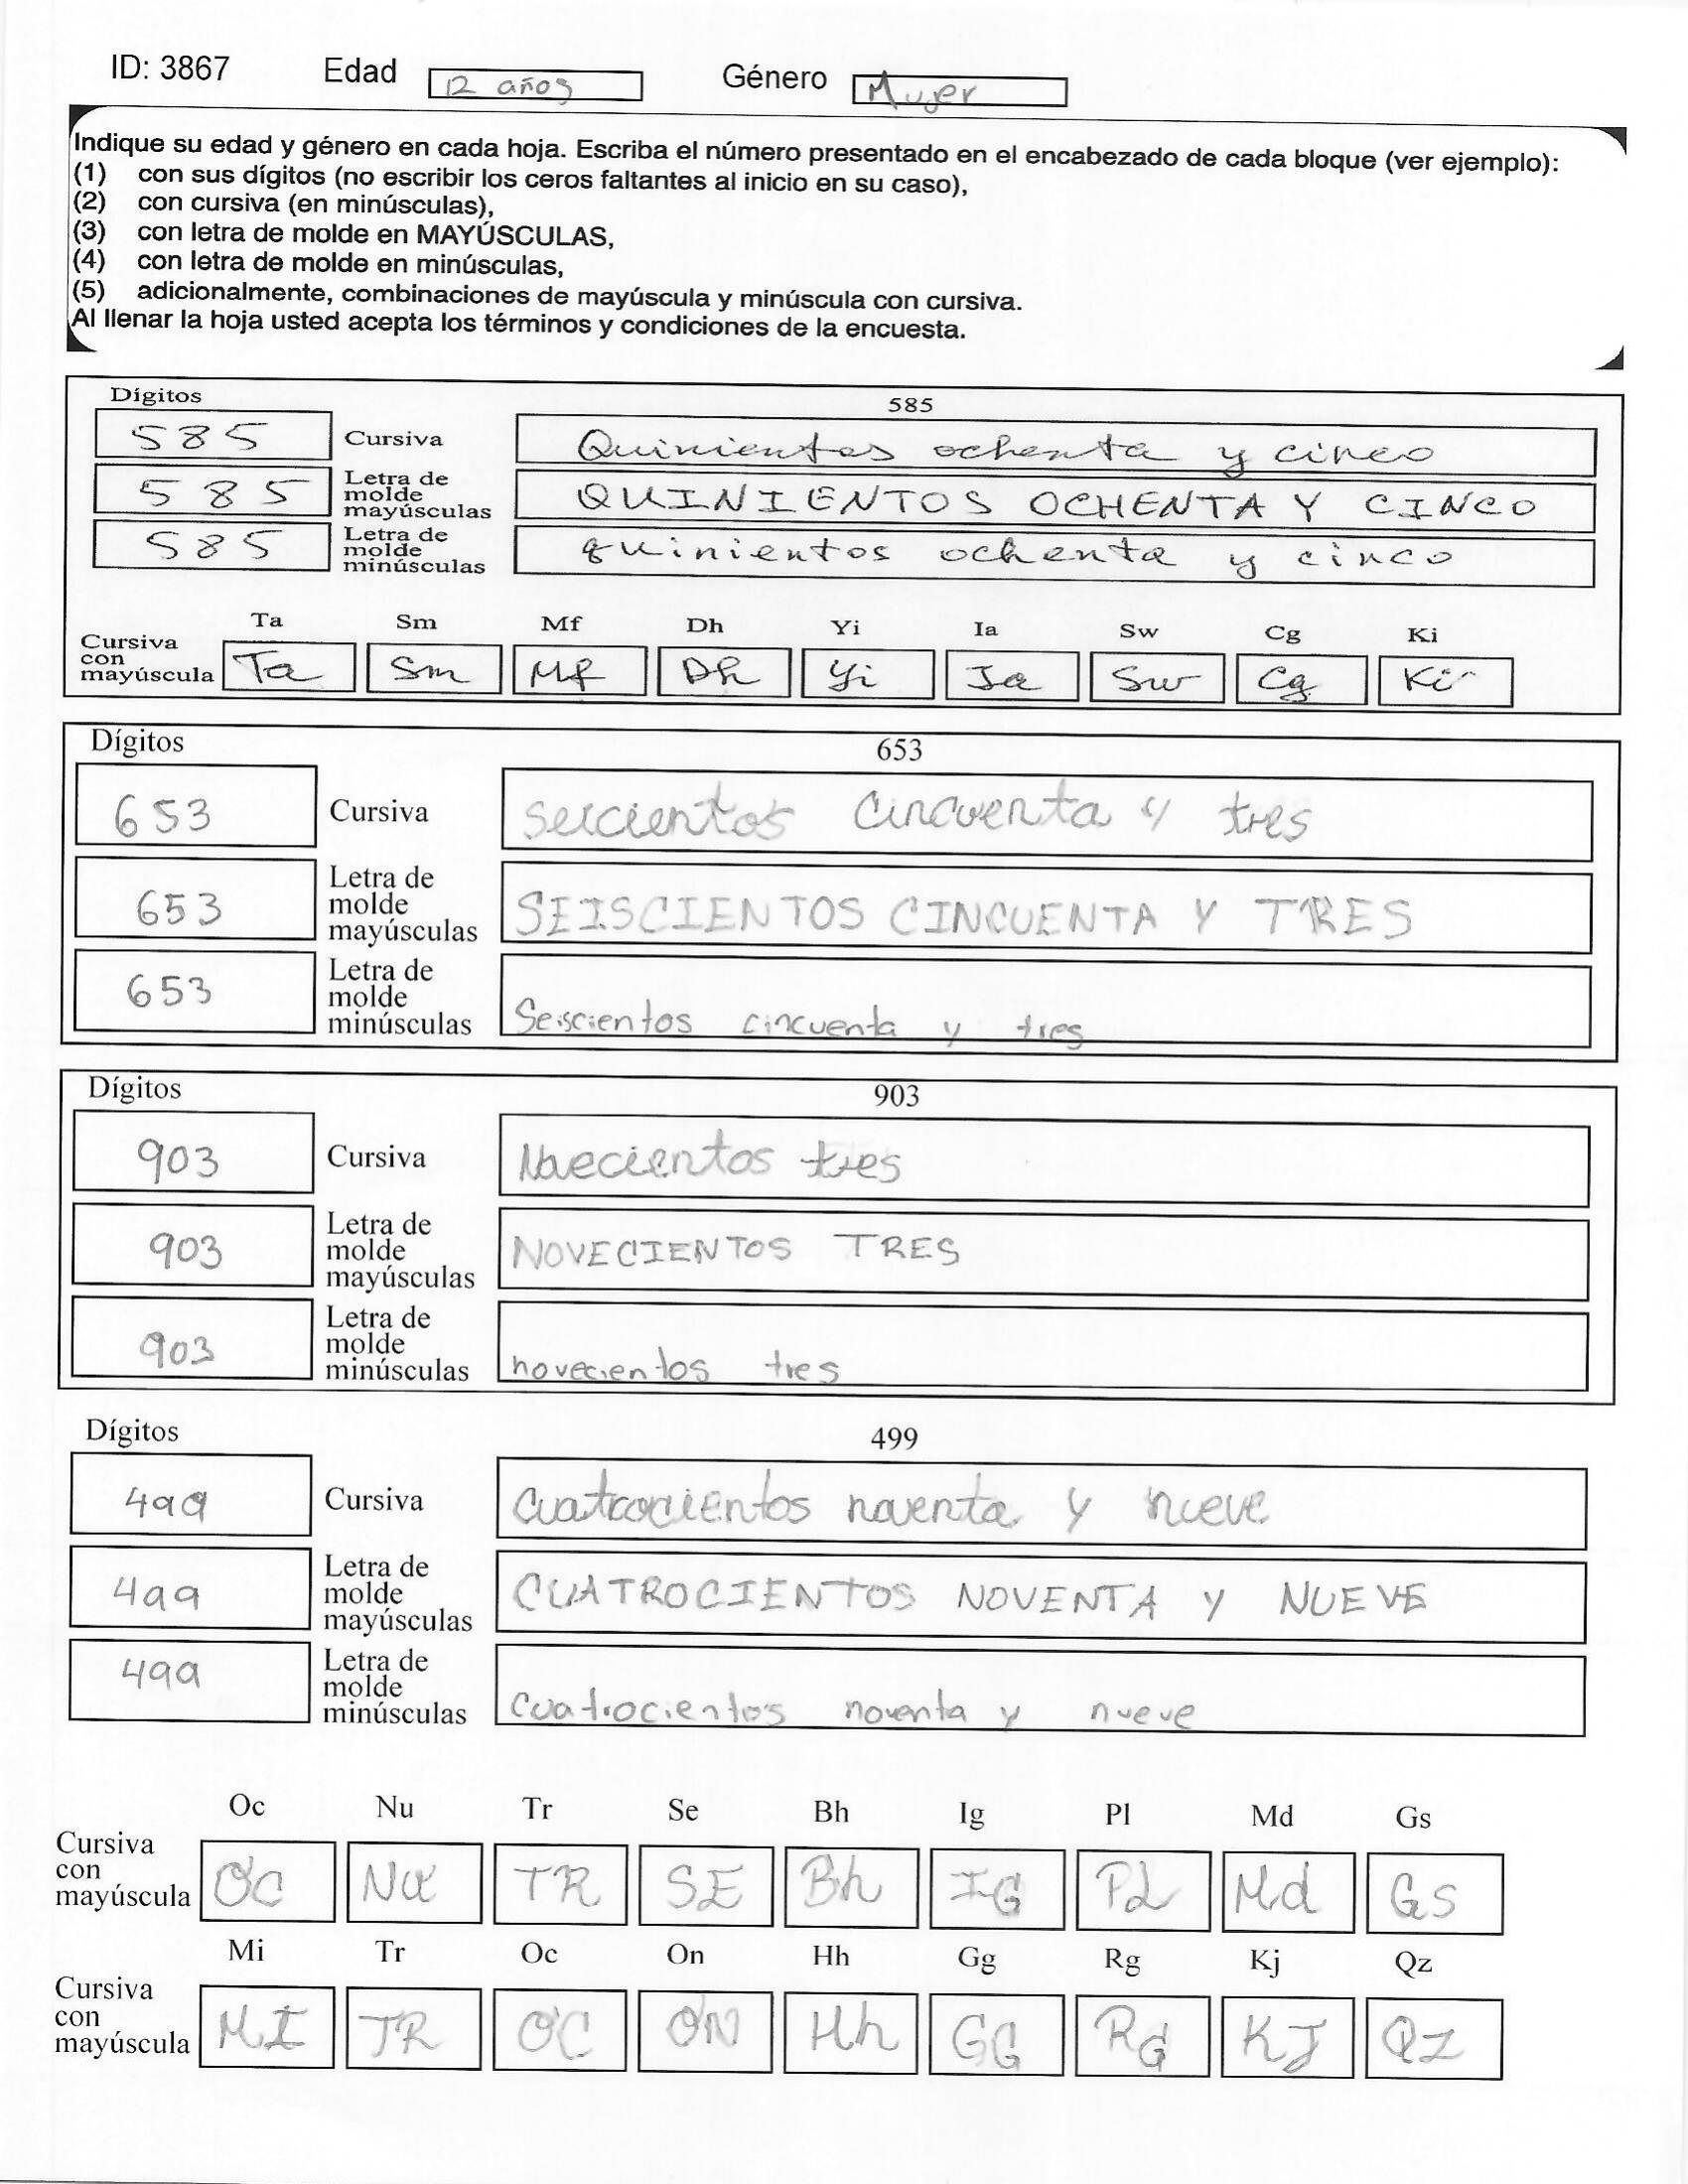 ID: 3867 Edad 12 años Género Mujer
Indique su edad y género en cada hoja. Escriba el número presentado en el encabezado de cada bloque (ver ejemplo):
(1) con sus dígitos (no escribir los ceros faltantes al inicio en su caso),
(2) con cursiva (en minúsculas),
(3) con letra de molde en MAYÚSCULAS,
(4) con letra de molde en minúsculas,
(5) adicionalmente, combinaciones de mayúscula y minúscula con cursiva.
Al llenar la hoja usted acepta los términos y condiciones de la encuesta.
Dígitos 585
585 Cursiva Quinientos ochenta y cinco
585 Letra de molde mayúsculas QUINIENTOS OCHENTA Y CINCO
585 Letra de molde minúsculas quinientos ochenta y cinco
Ta Sm Mf Dh Yi Ia Sw Cg Ki
Cursiva con mayúscula Ta Sm Mf Dh Yi Ia Sw Cg Ki
Dígitos 653
653 Cursiva seiscientos cincuenta y tres
653 Letra de molde mayúsculas SEISCIENTOS CINCUENTA Y TRES
653 Letra de molde minúsculas Seiscientos cincuenta y tres
Dígitos 903
903 Cursiva Novecientos tres
903 Letra de molde mayúsculas NOVECIENTOS TRES
903 Letra de molde minúsculas novecientos tres
Dígitos 499
499 Cursiva Cuatrocientos noventa y nueve
499 Letra de molde mayúsculas CUATROCIENTOS NOVENTA Y NUEVE
499 Letra de molde minúsculas cuatrocientos noventa y nueve
Oc Nu Tr Se Bh Ig Pl Md Gs
Cursiva con mayúscula OC NU TR SE Bh IG PL Md GS
Mi Tr Oc On Hh Gg Rg Kj Qz
Cursiva con mayúscula MI TR OC ON Hh GG RG KJ QZ